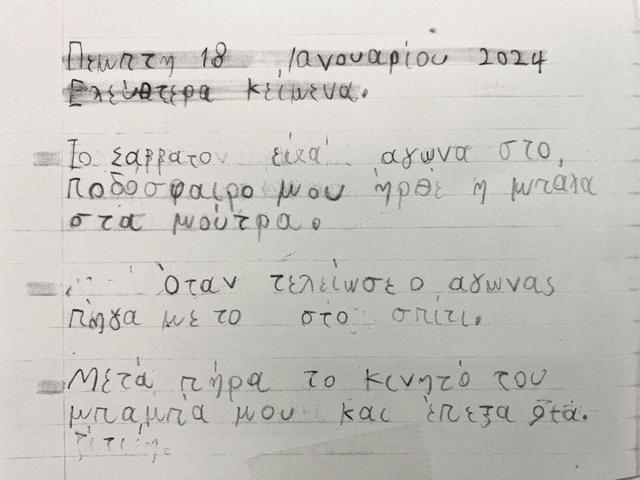 Πεμπτη 18 Ιανουαρίου 2024
Ελεύθτερα κείμενα.
Το Σαββατον είχα αγωνα στο,
ποδοσφαιρο μου ήρθε η μπαλα
στα μούτρα.
Όταν τελείωσε ο αγωνας
πήγα με το στο σπιτι.
Μετά πήρα το κινητό του
μπαμπά μου και έπεξα